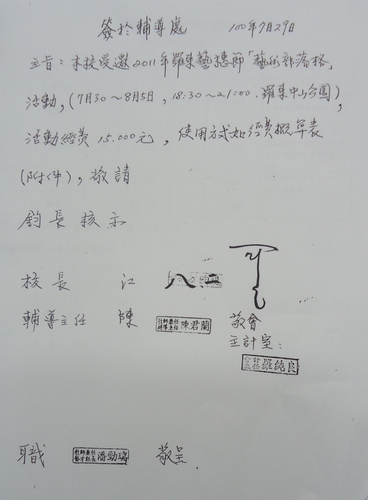 簽於輔導處 100年7月29日
主旨：本校受邀2011年羅東藝穗節「藝術部落格」
活動，(7月30～8月5日，18:30～21:00.羅東中山公園)，
活動經費15.000元，使用方式如經費概算表
(附件)，敬請
鈞長核示
校長 江
輔導主任 陳 陳君蘭
敬會
主計室：
羅純良
職 潘勁瑞 敬呈.